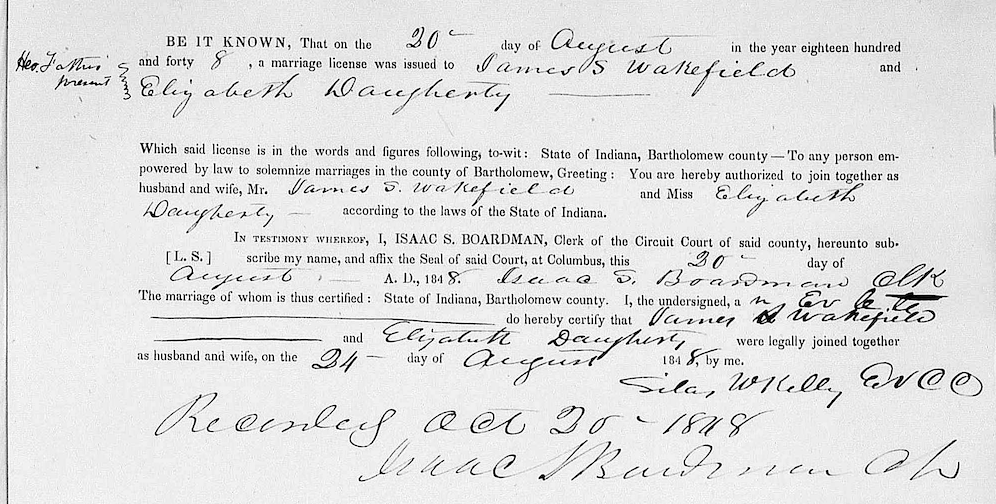 BE IT KNOWN, That on the 20 day of August in the year eighteen hundred
Her Father present
and forty 8, a marriage license was issued to James S Wakefield and
Elizabeth Daugherty
Which said license is in the words and figures following, to-wit: State of Indiana, Bartholomew county — To any person em-
powered by law to solemnize marriages in the county of Bartholomew, Greeting: You are hereby authorized to join together as
husband and wife, Mr. James S. Wakefield and Miss Elizabeth
Daugherty — according to the laws of the State of Indiana.
IN TESTIMONY WHEREOF, I, ISAAC S. BOARDMAN, Clerk of the Circuit Court of said county, hereunto sub-
[L. S.] scribe my name, and affix the Seal of said Court, at Columbus, this 20 day of
August A. D., 1848. Isaac S. Boardman Clk
The marriage of whom is thus certified: State of Indiana, Bartholomew county. I, the undersigned, a n Ev
do hereby certify that James S Wakefield
and Elizabeth Daugherty were legally joined together
as husband and wife, on the 24 day of August 1848, by me.
Silas W Kelly Ev C C
Recorded Oct 20 1848
Isaac S Boardman Clk